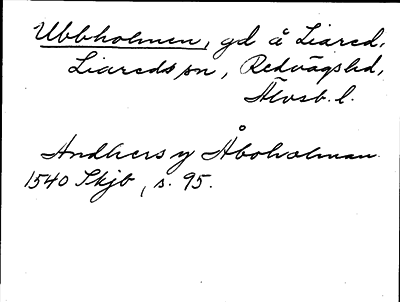 Ubbholmen, gd å Liared,
Liareds sn, Redvägs hd,
Älvsb. l.
Andhers y Åboholman
1540 Skjb, s. 95.